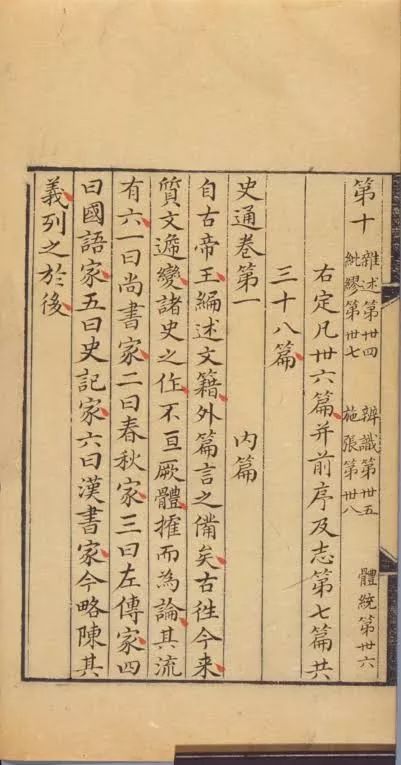 第十 雜述第卅四 辨識第卅五 體統第卅六
紕繆第卅七 施張第卅八
右定凡卅六篇并前序及志第七篇共
三十八篇
史通卷第一 內篇
自古帝王編述文籍外篇言之備矣古徃今来
質文遞變諸史之作不亘厥體搉而為論其流
有六一曰尚書家二曰春秋家三曰左傳家四
曰國語家五曰史記家六曰漢書家今略陳其
義列之於後